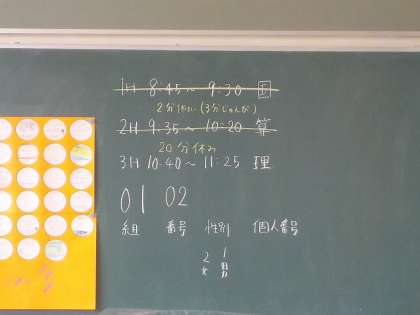 1H 8:45～9:30 国
2分休み(3分じゅんび)
2H 9:35～10:20 算
20分休み
3H 10:40～11:25 理
01 02
組 番号 性別 個人番号
2 1
女 男